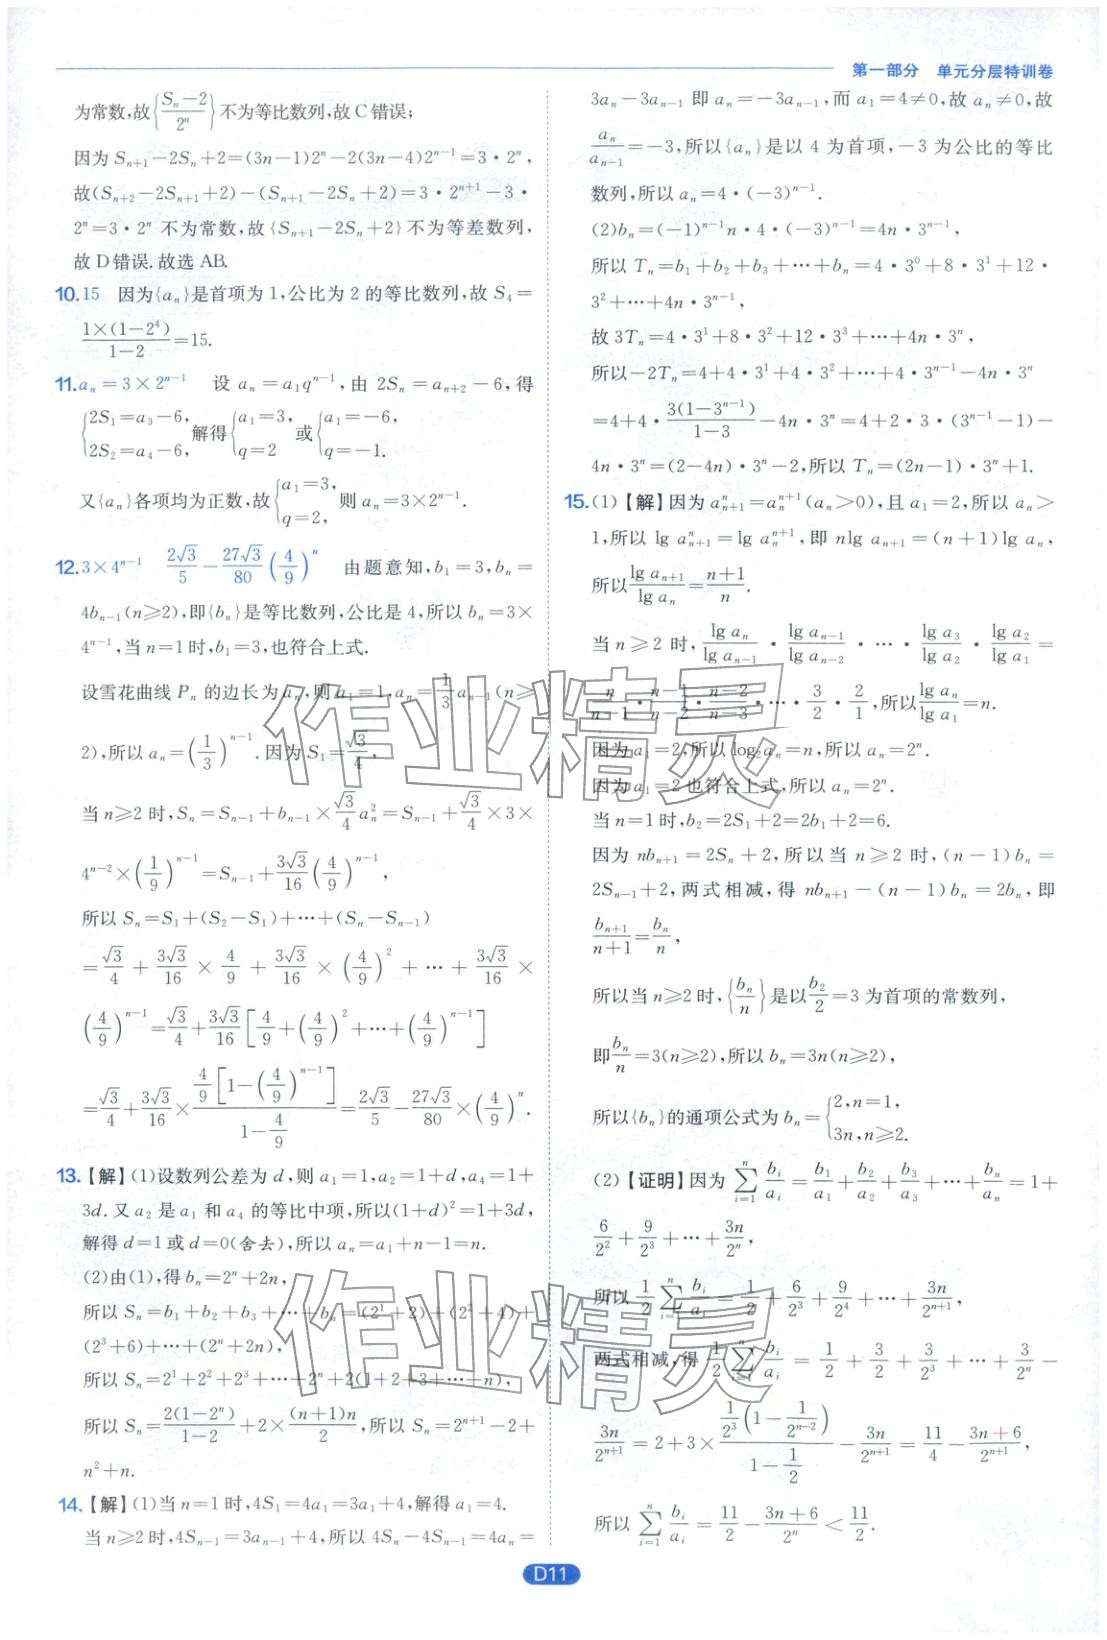 第一部分　单元分层特训卷
为常数,故{(Sₙ-2)/2ⁿ}不为等比数列,故C错误;
因为Sₙ₊₁-2Sₙ+2=(3n-1)2ⁿ-2(3n-4)2ⁿ⁻¹=3·2ⁿ,
故(Sₙ₊₂-2Sₙ₊₁+2)-(Sₙ₊₁-2Sₙ+2)=3·2ⁿ⁺¹-3·
2ⁿ=3·2ⁿ 不为常数,故{Sₙ₊₁-2Sₙ+2}不为等差数列,
故D错误.故选AB.
10.15　因为{aₙ}是首项为1,公比为2的等比数列,故S₄=
(1×(1-2⁴))/(1-2)=15.
11.aₙ=3×2ⁿ⁻¹　设aₙ=a₁qⁿ⁻¹,由2Sₙ=aₙ₊₂-6,得
{2S₁=a₃-6, 2S₂=a₄-6, 解得{a₁=3, q=2 或{a₁=-6, q=-1.
又{aₙ}各项均为正数,故{a₁=3, q=2, 则aₙ=3×2ⁿ⁻¹.
12.3×4ⁿ⁻¹　2√3/5-27√3/80(4/9)ⁿ　由题意知,b₁=3,bₙ=
4bₙ₋₁(n≥2),即{bₙ}是等比数列,公比是4,所以bₙ=3×
4ⁿ⁻¹,当n=1时,b₁=3,也符合上式.
设雪花曲线Pₙ的边长为aₙ,则a₁=1,aₙ=1/3 aₙ₋₁(n≥
2),所以aₙ=(1/3)ⁿ⁻¹.因为S₁=√3/4,
当n≥2时,Sₙ=Sₙ₋₁+bₙ₋₁×√3/4 aₙ²=Sₙ₋₁+√3/4×3×
4ⁿ⁻²×(1/9)ⁿ⁻¹=Sₙ₋₁+3√3/16(4/9)ⁿ⁻¹,
所以Sₙ=S₁+(S₂-S₁)+⋯+(Sₙ-Sₙ₋₁)
=√3/4+3√3/16×4/9+3√3/16×(4/9)²+⋯+3√3/16×
(4/9)ⁿ⁻¹=√3/4+3√3/16[4/9+(4/9)²+⋯+(4/9)ⁿ⁻¹]
=√3/4+3√3/16×(4/9[1-(4/9)ⁿ⁻¹])/(1-4/9)=2√3/5-27√3/80×(4/9)ⁿ.
13.【解】(1)设数列公差为d,则a₁=1,a₂=1+d,a₄=1+
3d.又a₂是a₁和a₄的等比中项,所以(1+d)²=1+3d,
解得d=1或d=0(舍去),所以aₙ=a₁+n-1=n.
(2)由(1),得bₙ=2ⁿ+2n,
所以Sₙ=b₁+b₂+b₃+⋯+bₙ=(2¹+2)+(2²+4)+
(2³+6)+⋯+(2ⁿ+2n),
所以Sₙ=2¹+2²+2³+⋯+2ⁿ+2(1+2+3+⋯+n),
所以Sₙ=2(1-2ⁿ)/(1-2)+2×(n+1)n/2,所以Sₙ=2ⁿ⁺¹-2+
n²+n.
14.【解】(1)当n=1时,4S₁=4a₁=3a₁+4,解得a₁=4.
当n≥2时,4Sₙ₋₁=3aₙ₋₁+4,所以4Sₙ-4Sₙ₋₁=4aₙ=
3aₙ-3aₙ₋₁即aₙ=-3aₙ₋₁,而a₁=4≠0,故aₙ≠0,故
aₙ/aₙ₋₁=-3,所以{aₙ}是以4为首项,-3为公比的等比
数列,所以aₙ=4·(-3)ⁿ⁻¹.
(2)bₙ=(-1)ⁿ⁻¹n·4·(-3)ⁿ⁻¹=4n·3ⁿ⁻¹,
所以Tₙ=b₁+b₂+b₃+⋯+bₙ=4·3⁰+8·3¹+12·
3²+⋯+4n·3ⁿ⁻¹,
故3Tₙ=4·3¹+8·3²+12·3³+⋯+4n·3ⁿ,
所以-2Tₙ=4+4·3¹+4·3²+⋯+4·3ⁿ⁻¹-4n·3ⁿ
=4+4·3(1-3ⁿ⁻¹)/(1-3)-4n·3ⁿ=4+2·3·(3ⁿ⁻¹-1)-
4n·3ⁿ=(2-4n)·3ⁿ-2,所以Tₙ=(2n-1)·3ⁿ+1.
15.(1)【解】因为aₙ₊₁ⁿ=aₙⁿ⁺¹(aₙ>0),且a₁=2,所以aₙ>
1,所以lg aₙ₊₁ⁿ=lg aₙⁿ⁺¹,即nlg aₙ₊₁=(n+1)lg aₙ,
所以lg aₙ₊₁/lg aₙ=(n+1)/n.
当n≥2时,lg aₙ/lg aₙ₋₁·lg aₙ₋₁/lg aₙ₋₂·⋯·lg a₃/lg a₂·lg a₂/lg a₁=
n/(n-1)·(n-1)/(n-2)·(n-2)/(n-3)·⋯·3/2·2/1,所以lg aₙ/lg a₁=n.
因为a₁=2,所以log₂aₙ=n,所以aₙ=2ⁿ.
因为a₁=2也符合上式,所以aₙ=2ⁿ.
当n=1时,b₂=2S₁+2=2b₁+2=6.
因为nbₙ₊₁=2Sₙ+2,所以当n≥2时,(n-1)bₙ=
2Sₙ₋₁+2,两式相减,得nbₙ₊₁-(n-1)bₙ=2bₙ,即
bₙ₊₁/(n+1)=bₙ/n,
所以当n≥2时,{bₙ/n}是以b₂/2=3为首项的常数列,
即bₙ/n=3(n≥2),所以bₙ=3n(n≥2),
所以{bₙ}的通项公式为bₙ={2,n=1, 3n,n≥2.
(2)【证明】因为∑ᵢ₌₁ⁿ bᵢ/aᵢ=b₁/a₁+b₂/a₂+b₃/a₃+⋯+bₙ/aₙ=1+
6/2²+9/2³+⋯+3n/2ⁿ,
所以1/2∑ᵢ₌₁ⁿ bᵢ/aᵢ=1/2+6/2³+9/2⁴+⋯+3n/2ⁿ⁺¹,
两式相减,得1/2∑ᵢ₌₁ⁿ bᵢ/aᵢ=1/2+3/2+3/2³+⋯+3/2ⁿ-
3n/2ⁿ⁺¹=2+3×(1/2³(1-1/2ⁿ⁻²))/(1-1/2)-3n/2ⁿ⁺¹=11/4-(3n+6)/2ⁿ⁺¹,
所以∑ᵢ₌₁ⁿ bᵢ/aᵢ=11/2-(3n+6)/2ⁿ<11/2.
作业精灵
作业精灵
D11